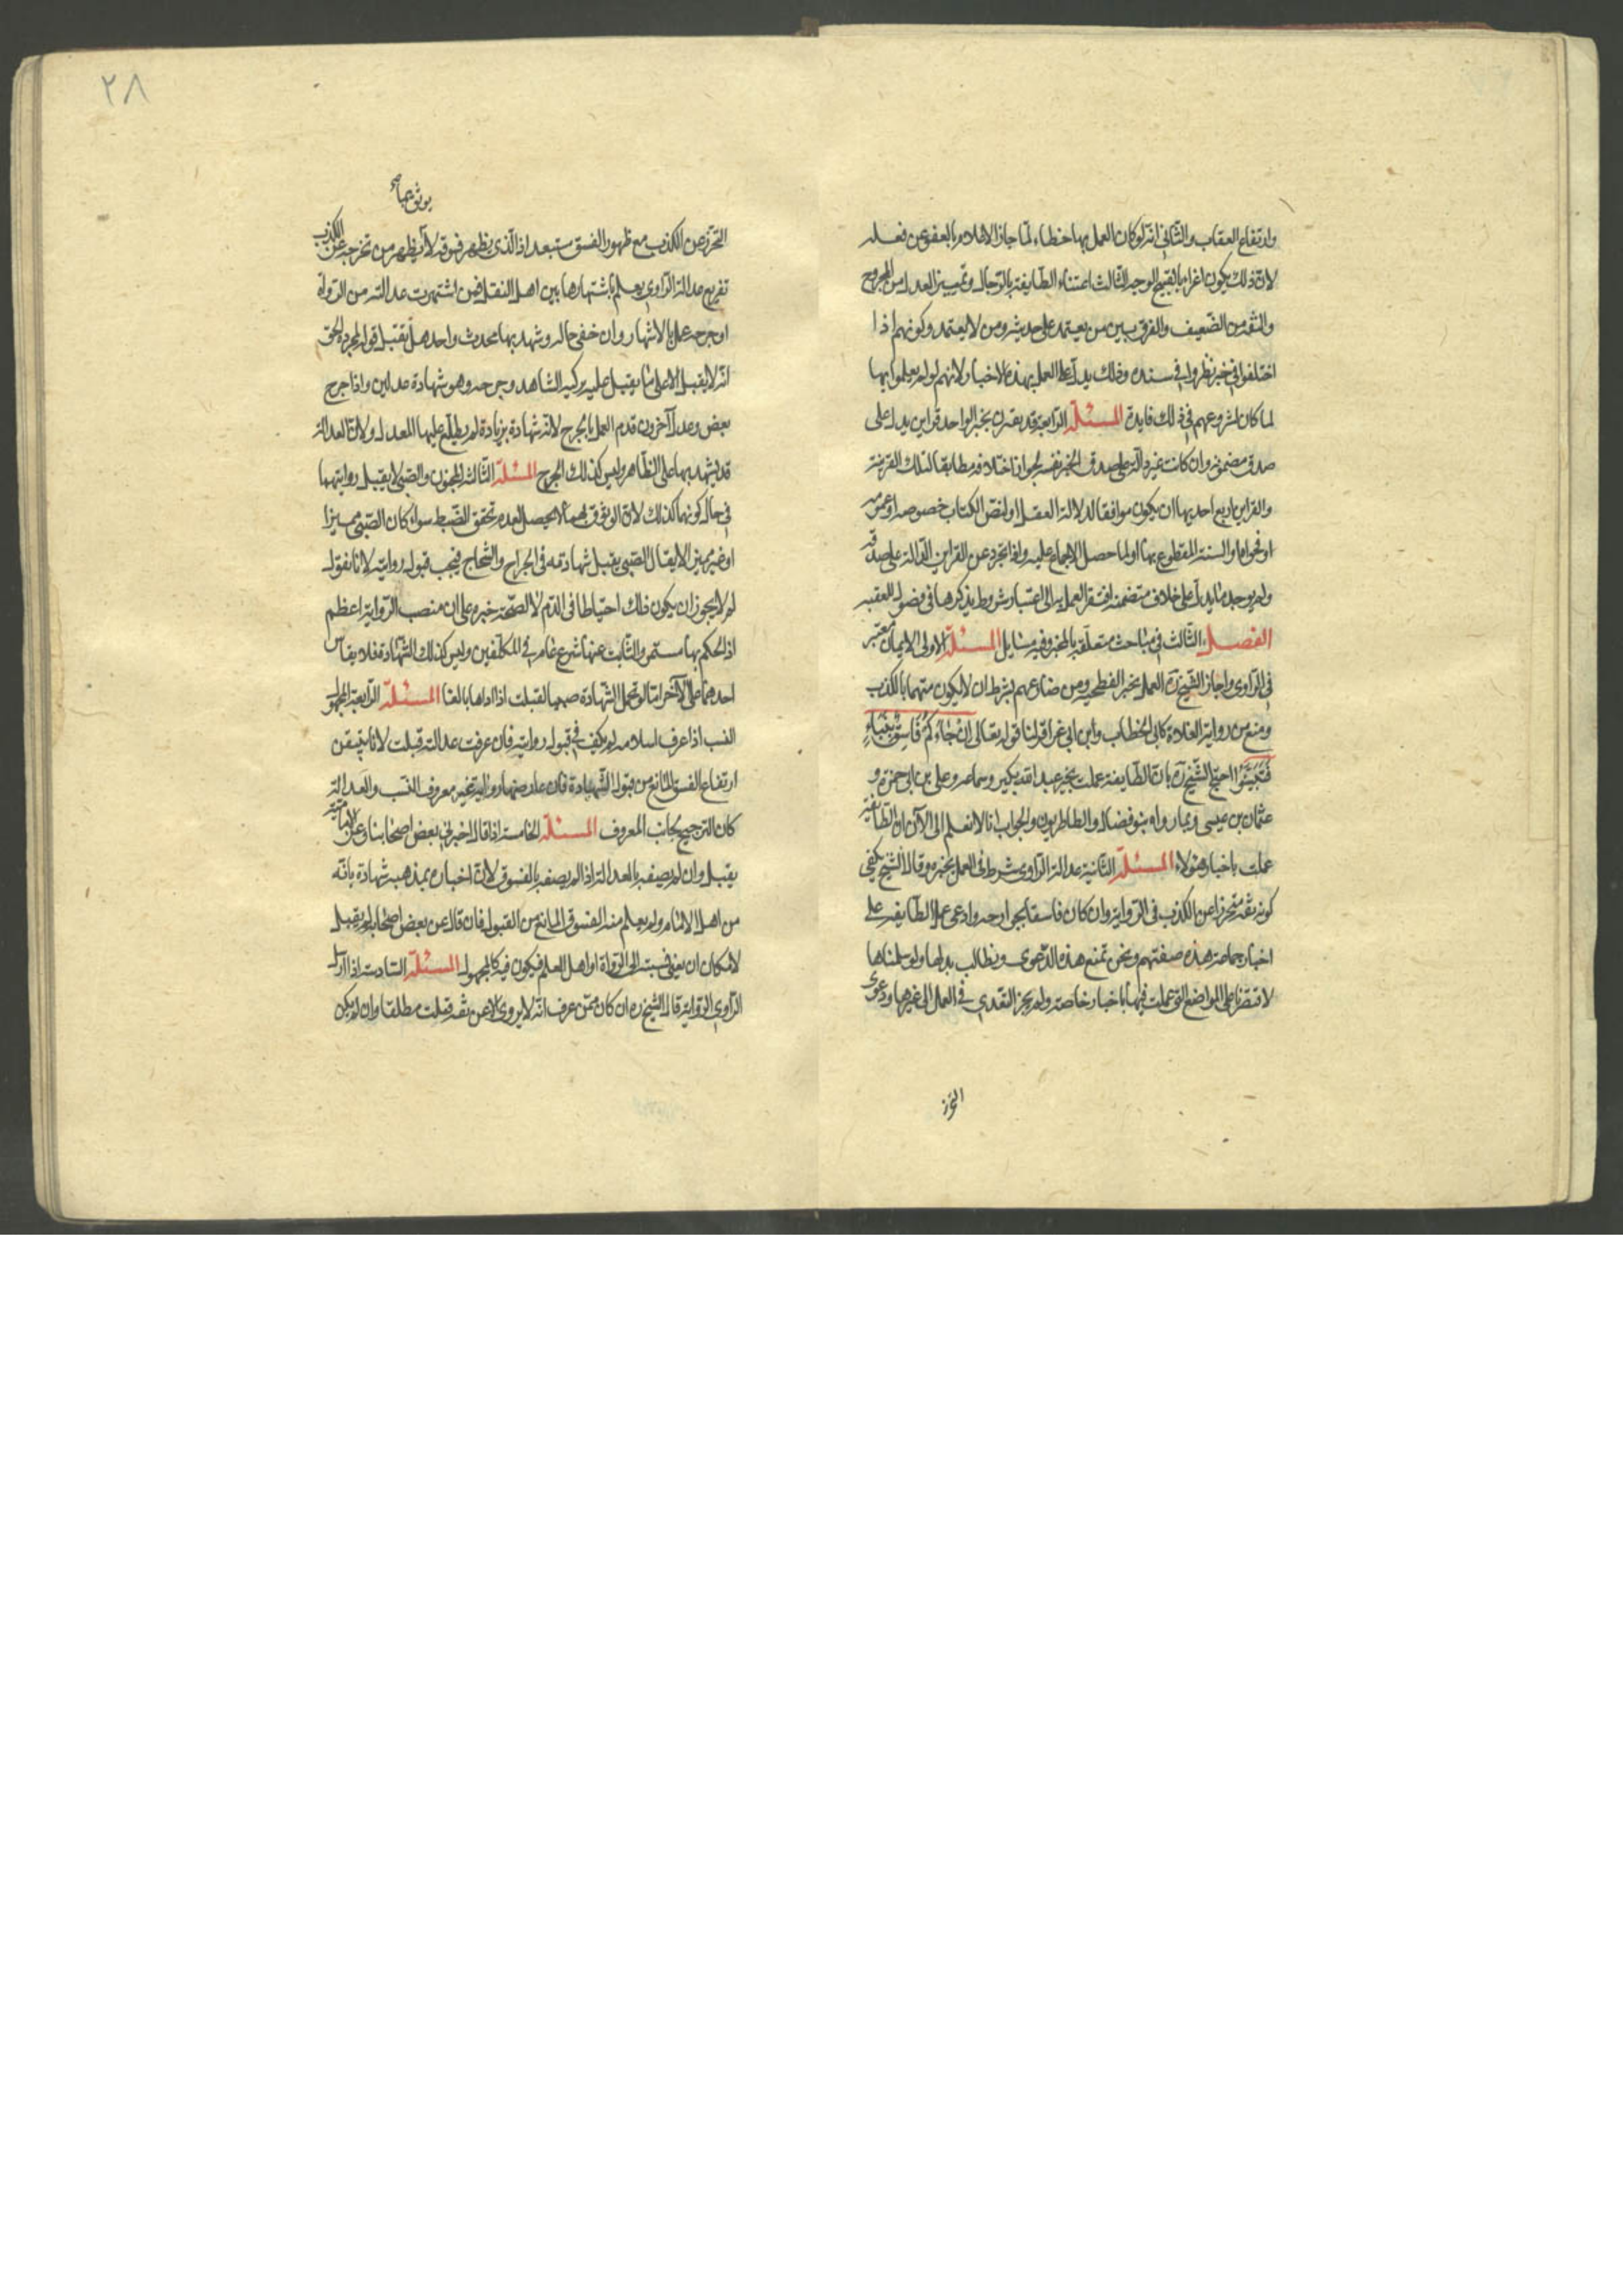 وارتفاع العقاب والثانی انه لو کان العمل بها خطاء لما جاز الاعلام بالعفو عن فعله
لان ذلک یکون اغراء بالقبیح الوجه الثالث اعتناء الطایفة بالرجال وتمییز العدل من المجروح
والثقة من الضعیف والفرق بین من یعتمد علی حدیثه ومن لا یعتمد وکونهم اذا
اختلفوا فی خبر نظروا فی سنده وذلک یدل علی العمل بهذه الاخبار لانهم لو لم یعملوا بها
لما کان لشروعهم فی ذلک فایدة المسئلة الرابعة قد یقترن بخبر الواحد قراین یدل علی
صدق مضمونه وان کانت غیر دالة علی صدق الخبر نفسه لجواز اختلاقه مطابقا لتلک القرینة
والقراین اربع احدیها ان یکون موافقا لدلالة العقل او لنص الکتاب خصوصه او عمومه
او فحواه او السنة المقطوع بها او لما حصل الاجماع علیه واذا تجرد عن القراین الدالة علی صدقه
ولم یوجد ما یدل علی خلاف متضمنه افتقر العمل به الی اعتبار شروط یذکرها فی فصول المعقبه
الفصل الثالث فی مباحث متعلقة بالمخبر وفیه مسایل المسئلة الاولی الایمان معتبر
فی الراوی واجاز الشیخ ره العمل بخبر الفطحیه ومن ضارعهم بشرط ان لا یکون متهما بالکذب
ومنع من روایة الغلاة کابی الخطاب وابن ابی عزاقر لنا قوله تعالی ان جٰاءکم فاسق بنباء
فتبینوا احتج الشیخ ره بان الطایفة عملت بخبر عبد الله بکیر وسماعه وعلی بن ابی حمزة و
عثمان بن عیسی وبما رواه بنو فضال والطاطریون والجواب انا لا نعلم الی الآن ان الطائفة
عملت باخبار هؤلاء المسئلة الثانیة عدالة الراوی شرط فی العمل بخبره وقال الشیخ یکفی
کونه ثقة متحرزا عن الکذب فی الروایة وان کان فاسقا بجوارحه وادعی عمل الطایفة علی
اخبار جماعة هذه صفتهم ونحن نمنع هذه الدعوی ونطالب بدلیلها ولو سلمناها
لاقتصرنا علی المواضع التی عملت فیها باخبار خاصة ولم یجز التعدی فی العمل الی غیرها ودعوی
التحرز
۲۸
یوثق بها
التحرز عن الکذب مع ظهور الفسق مستبعد اذ الذی یظهر فسوقه لا یظهر من تحرجه عن الکذب
تفریع عدالة الراوی یعلم باشتهارها بین اهل النقل فمن اشتهرت عدالته من الرواة
او جرحه عمل بالاشهار وان خفی حاله وشهد بها محدث واحد هل یقبل قوله لمجرده الحق
انه لا یقبل الا علی ما یقبل علیه تزکیه الشاهد وجرحه وهو شهادة عدلین واذا جرح
بعض وعدل آخرون قدم العمل بالجرح لانه شهادة بزیادة لم یطلع علیها المعدل ولان العدالة
قد یشهد بها علی الظاهر ولیس کذلک الجرح المسئلة الثالثة المجنون والصبی لا یقبل روایتهما
فی حال کونهما کذلک لان الوثوق بهما لا یحصل لعدم تحقق الضبط سواء کان الصبی ممیزا
او غیر ممیز لا یقال الصبی یقبل شهادته فی الجراح والشجاج فیجب قبول روایته لانا نقول
لم لا یجوز ان یکون ذلک احتیاطا فی الدم لا لصحة خبره علی ان منصب الروایة اعظم
اذ الحکم بها مستمر والثابت عنها شرع عام فی المکلفین ولیس کذلک الشهادة فلا یقاس
احدهما علی الآخر اما لو تحمل الشهادة صبیا لقبلت اذا اداها بالغا المسئلة الرابعة المجهول
النسب اذا عرف اسلامه لم یکف فی قبول روایته فان عرفت عدالته قبلت لانا نتیقن
ارتفاع الفسق المانع من قبول الشهادة فان عارضها روایة غیر معروف النسب والعدالة
کان الترجیح لجانب المعروف المسئلة الخامسة اذا قال اخبرنی بعض اصحابنا وعنی الامامیة
یقبل وان لم یصفه بالعدالة اذا لم یصفه بالفسوق لان اخباره بمذهبه شهادة بانه
من اهل الامامة ولم یعلم منه الفسوق المانع من القبول فان قال عن بعض اصحابه لم یقبل
لامکان ان یعنی نسبته الی الرواة او اهل العلم فیکون فیه کالمجهول المسئلة السادسة اذا ارسل
الراوی الروایة قال الشیخ ره ان کان ممن عرف انه لا یروی الا عن ثقة قبلت مطلقا وان لم یکن